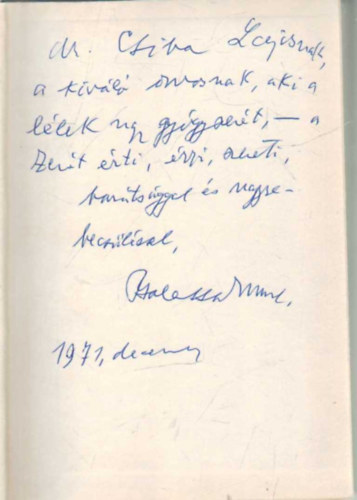 dr. Csiba Lajosnak,
a kiváló orvosnak, aki a
lélek nagy gyógyszerét, — a
zenét érti, érzi, szereti,
barátsággal és nagyra-
becsüléssel,
Balassa Imre.
1971, december